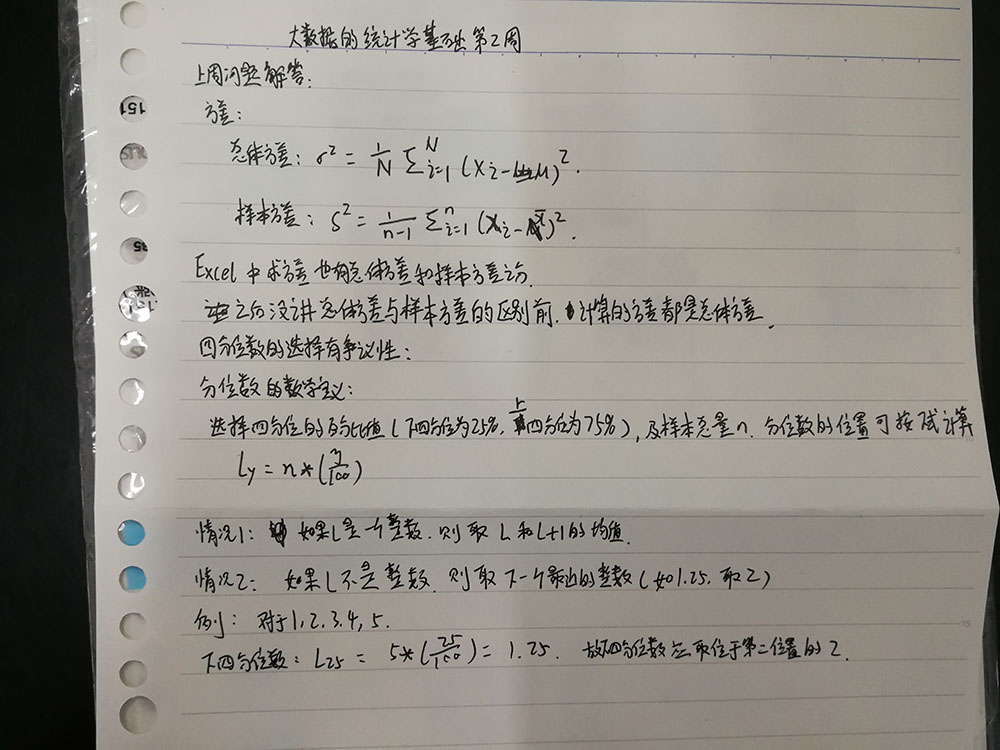 大数据的统计学基础第2周
上周问题解答:
方差:
总体方差: σ² = 1/N Σᴺᵢ₌₁ (xi-μ)².
样本方差: S² = 1/(n-1) Σⁿᵢ₌₁ (xi-x̄)².
Excel中求方差也有总体方差和样本方差之分.
在之后没讲总体方差与样本方差的区别前, 计算的方差都是总体方差.
四分位数的选择有争议性:
分位数的数学定义:
选择四分位的百分比值(下四分位为25%, 上四分位为75%), 及样本总量n. 分位数的位置可按下式计算
Ly = n*(y/100)
情况1: 如果L是一个整数, 则取L和L+1的均值.
情况2: 如果L不是整数, 则取下一个最近的整数(如1.25, 取2)
例: 对于1, 2, 3, 4, 5.
下四分位数: L25 = 5*(25/100) = 1.25. 故下四分位数应取位于第二位置的2.
151